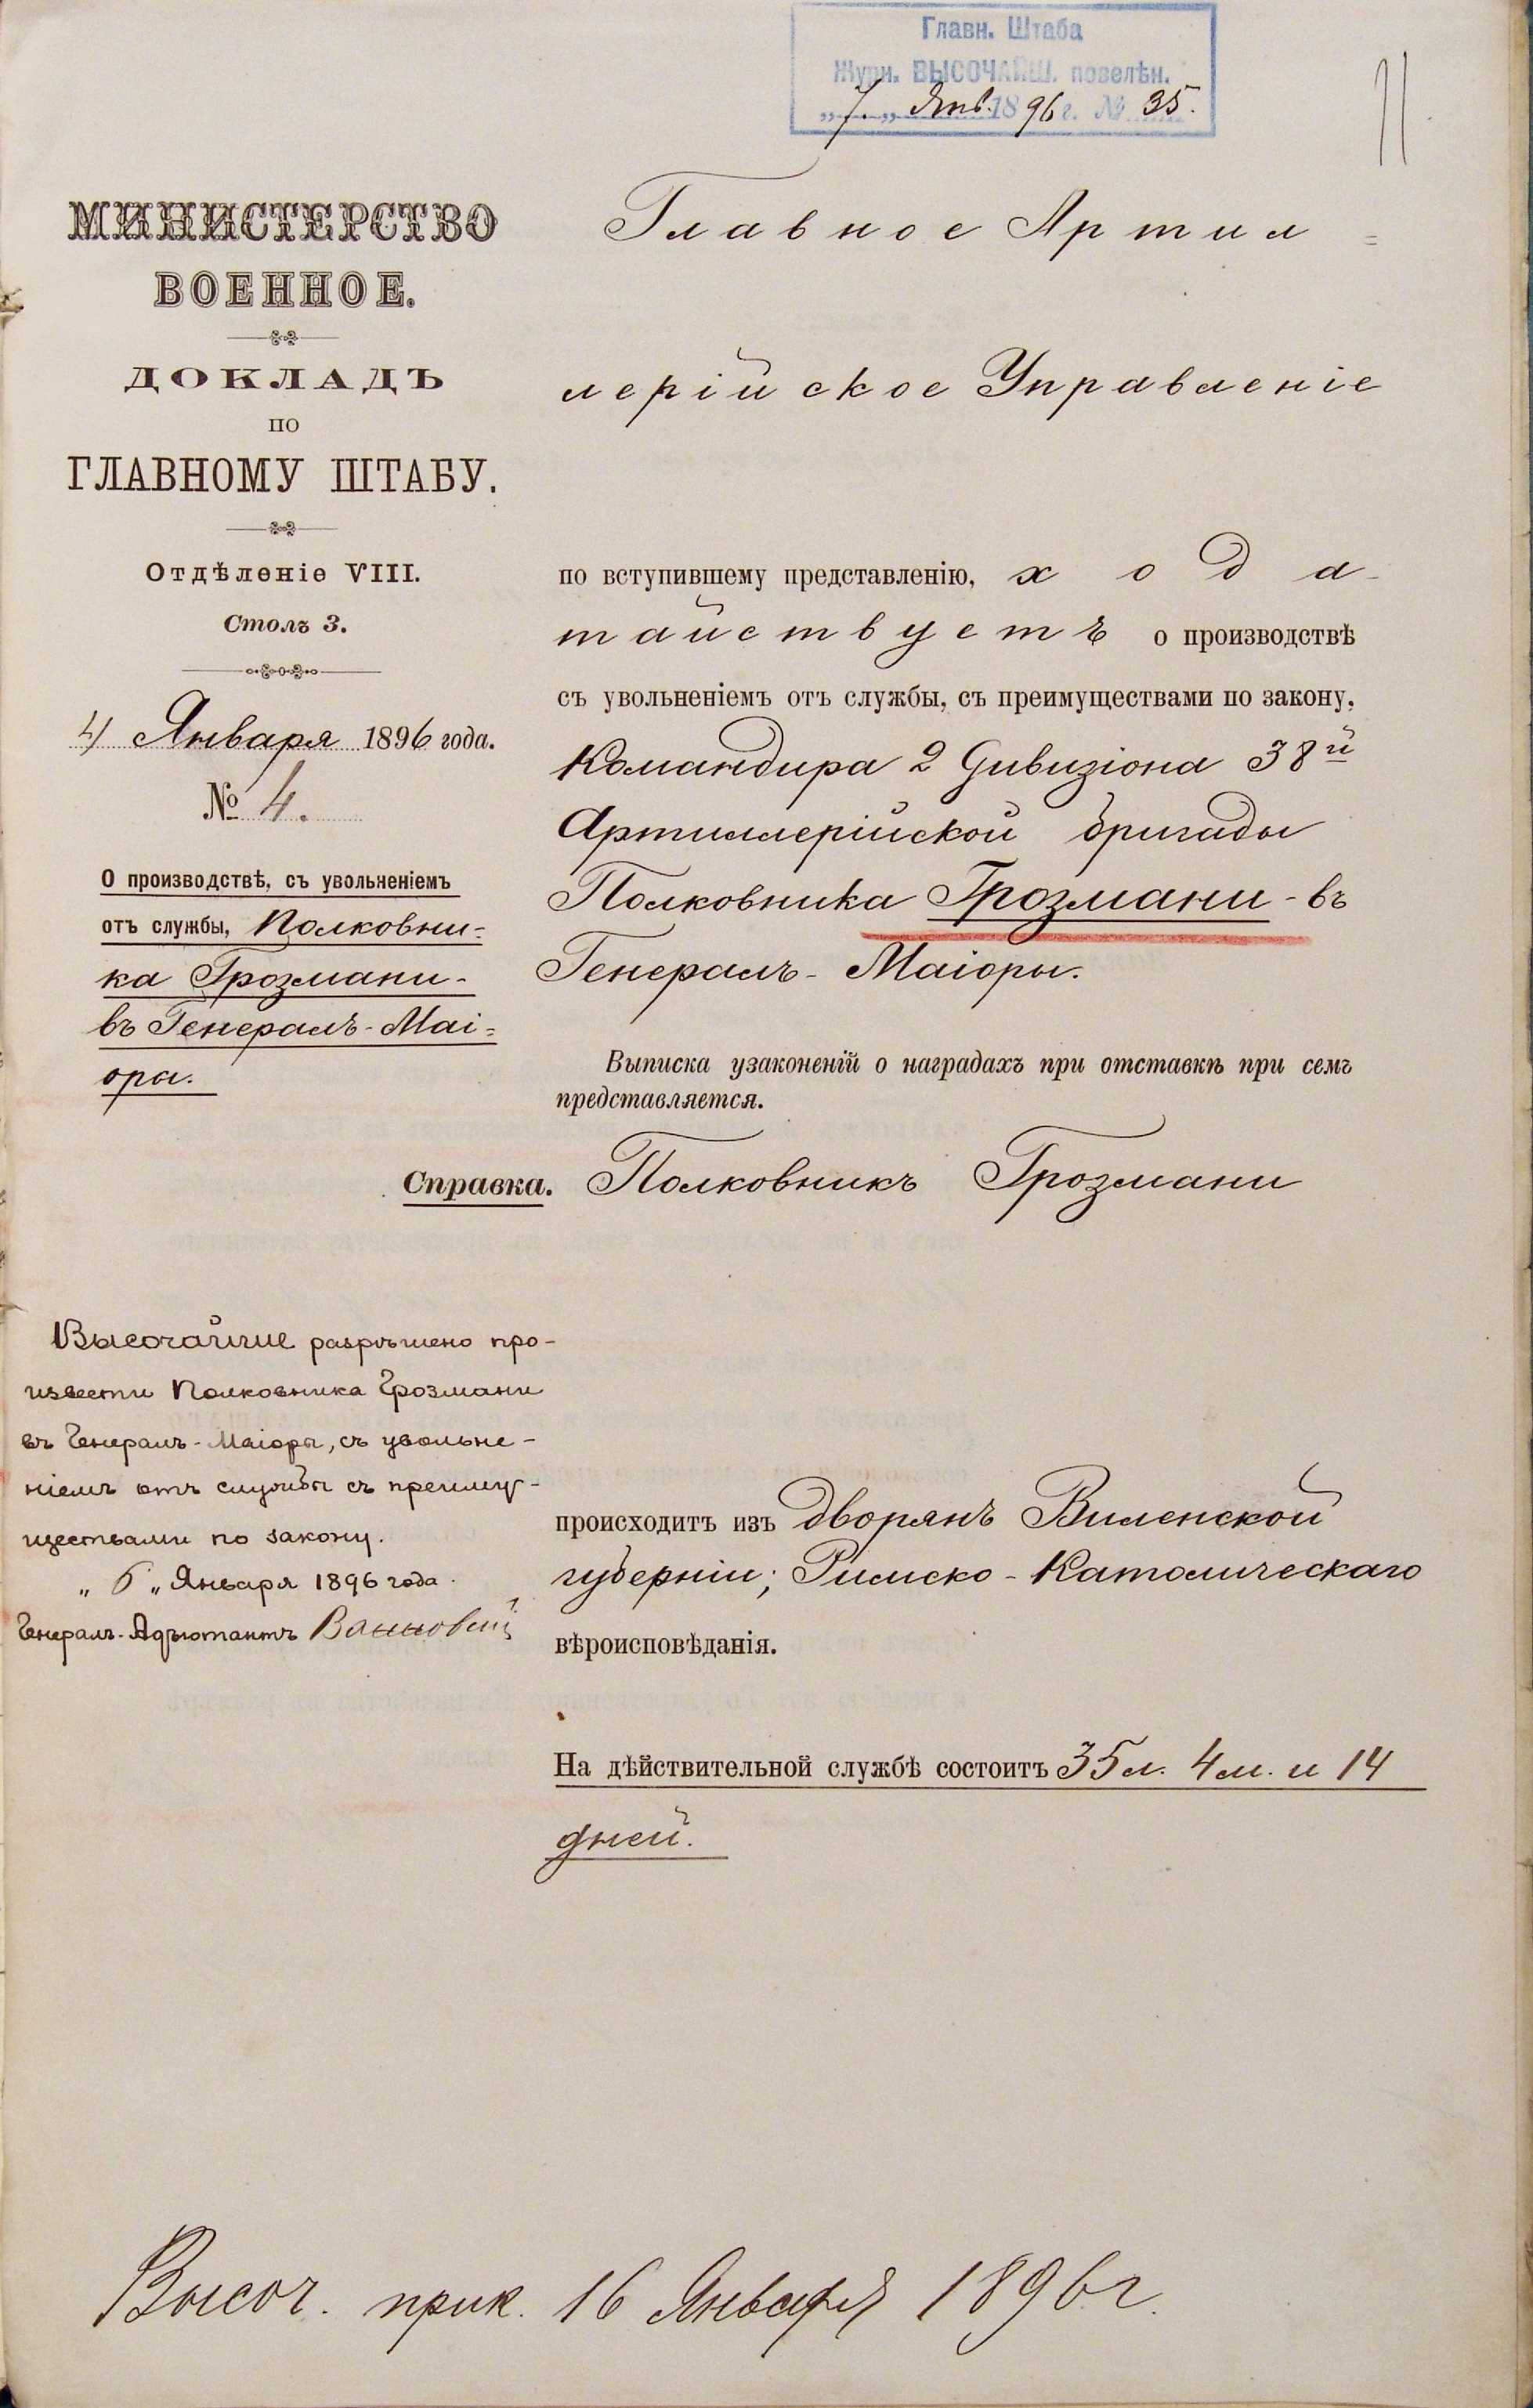 Главн. Штаба
Журн. ВЫСОЧАЙШ. повелѣн.
„7.„ Янв. 1896 г. № 35.
11
МИНИСТЕРСТВО
ВОЕННОЕ.
ДОКЛАДЪ
ПО
ГЛАВНОМУ ШТАБУ.
Отдѣленіе VIII.
Столъ 3.
4 Января 1896 года.
№ 4.
О производствѣ, съ увольненіемъ
отъ службы, Полковни-
ка Грозмани-
въ Генералъ-Маі-
оры.
Главное Артил=
лерійское Управленіе
по вступившему представленію, хода-
тайствуетъ о производствѣ
съ увольненіемъ отъ службы, съ преимуществами по закону,
Командира 2 Дивизіона 38й
Артиллерійской бригады
Полковника Грозмани - въ
Генералъ-Маіоры.
Выписка узаконеній о наградахъ при отставкѣ при семъ
представляется.
Справка. Полковникъ Грозмани
Высочайше разрѣшено про-
извести Полковника Грозмани
въ Генералъ-Маіоры, съ увольне-
ніемъ отъ службы съ преиму-
ществами по закону.
„ 6 „ Января 1896 года.
Генералъ-Адъютантъ Ванновскій
происходитъ изъ дворянъ Виленской
губерніи; Римско-Католическаго
вѣроисповѣданія.
На дѣйствительной службѣ состоитъ 35 л. 4 м. и 14
дней.
Высоч. прик. 16 Января 1896 г.